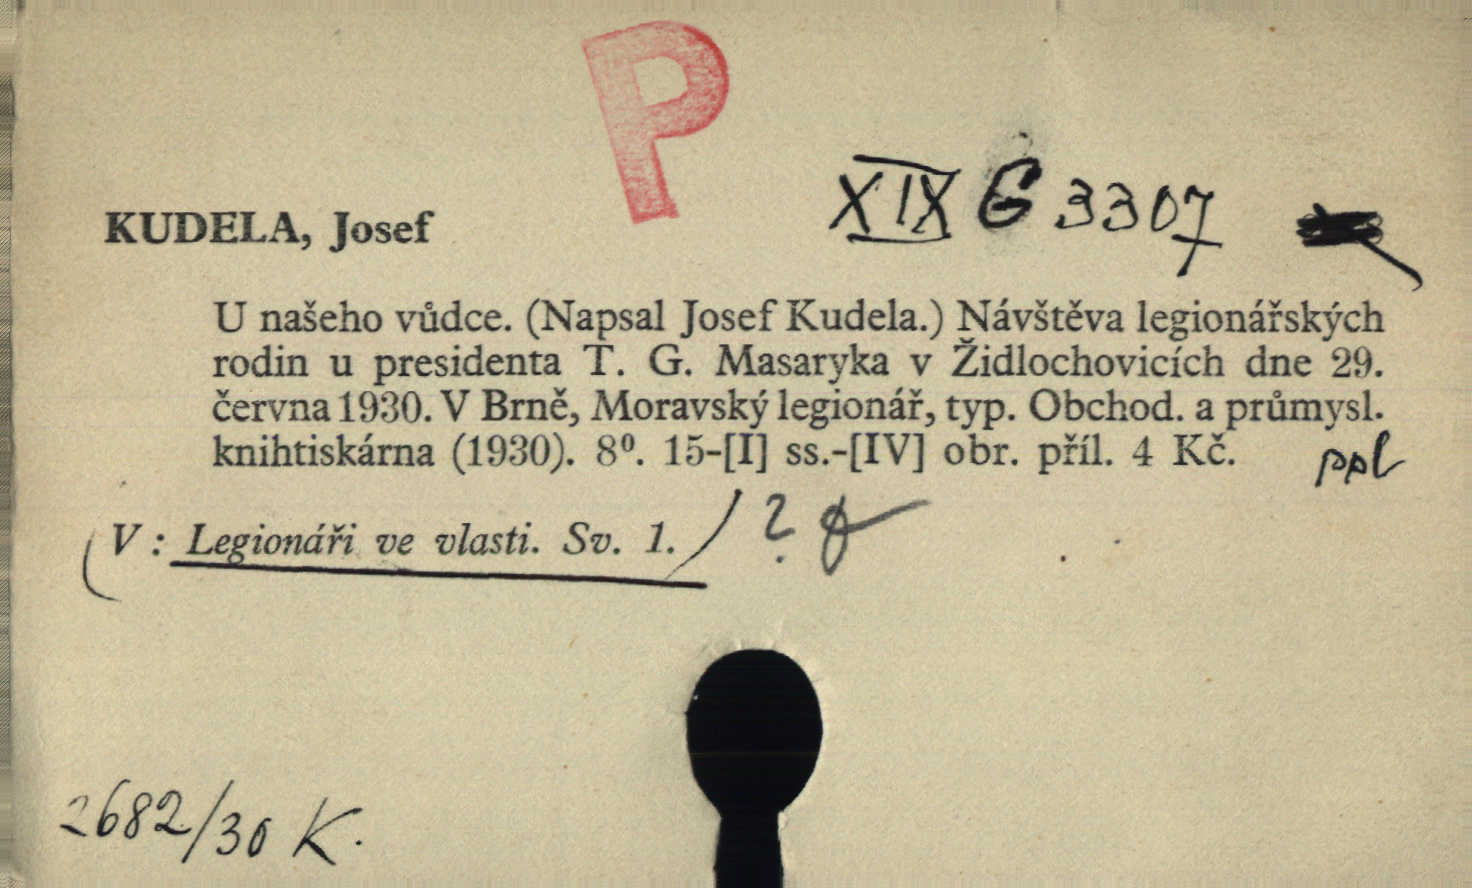 P
XIX G 3307
KUDELA, Josef
U našeho vůdce. (Napsal Josef Kudela.) Návštěva legionářských
rodin u presidenta T. G. Masaryka v Židlochovicích dne 29.
června 1930. V Brně, Moravský legionář, typ. Obchod. a průmysl.
knihtiskárna (1930). 8⁰. 15-[I] ss.-[IV] obr. příl. 4 Kč.
ppl
(V : Legionáři ve vlasti. Sv. 1.) ?
2682/30 K.